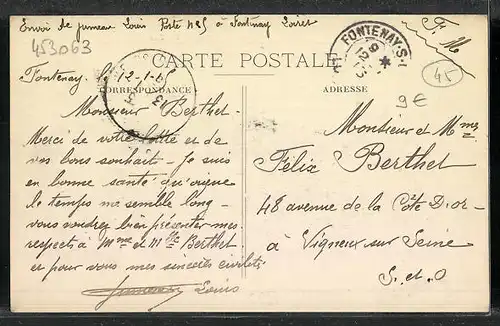 Envoi de Jumeau Louis Poste n° 25 à Fontenay Loiret
F. M
453063
CARTE POSTALE
FONTENAY-S-L
45
9€
Fontenay, le 12-1-15
CORRESPONDANCE
ADRESSE
Monsieur Berthet
Merci de votre lettre et de
vos bons souhaits - je suis
en bonne santé quoique
le temps me semble long -
vous voudrez bien présenter mes
respects à Mme et Mlle Berthet
et pour vous mes sincères civilités
Louis
Monsieur et Mme
Félix Berthet
48 avenue de la Côte D'or
à Vigneux sur Seine
S. et O